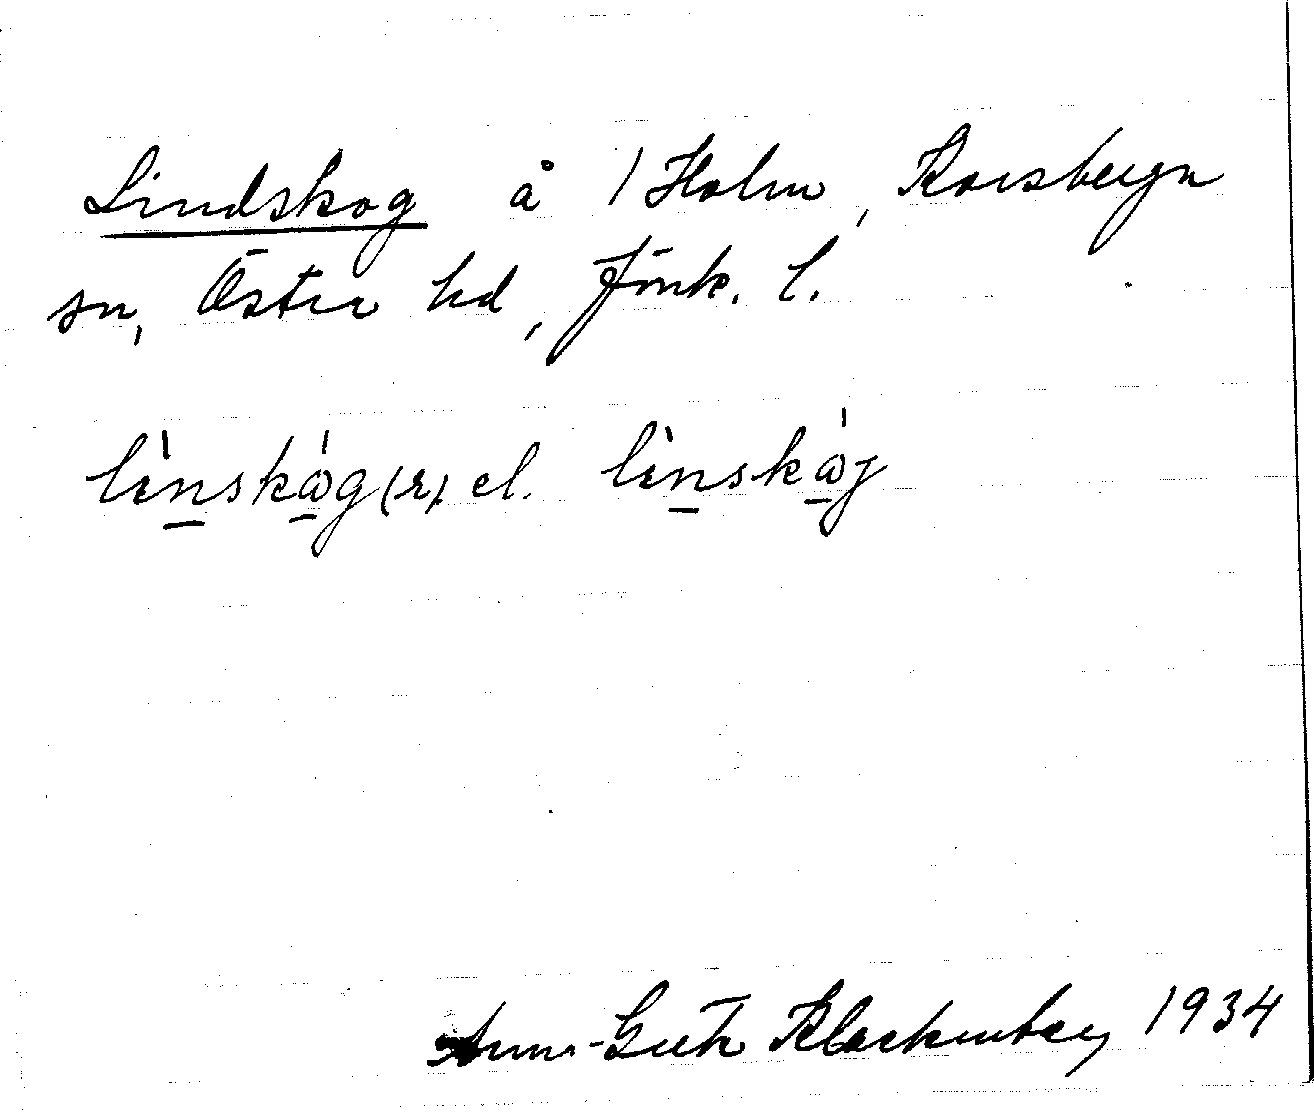 Lindskog å 1 Holm, Korsberga
sn, Östra hd, Jönk. l.
lìnskȯg(ɛ) el. lìnskȯj
Anna-Greta Klackenberg 1934